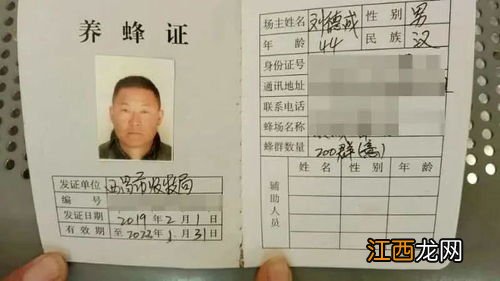 养蜂证
发证单位 西昌市农牧局
编号
发证日期 2019年2月1日
有效期 至2022年1月31日
场主姓名 刘德成 性别 男
年龄 44 民族 汉
身份证号
通讯地址
联系电话
蜂场名称
蜂群数量 200群(意)
辅助人员
姓名 性别 年龄
江西龙网